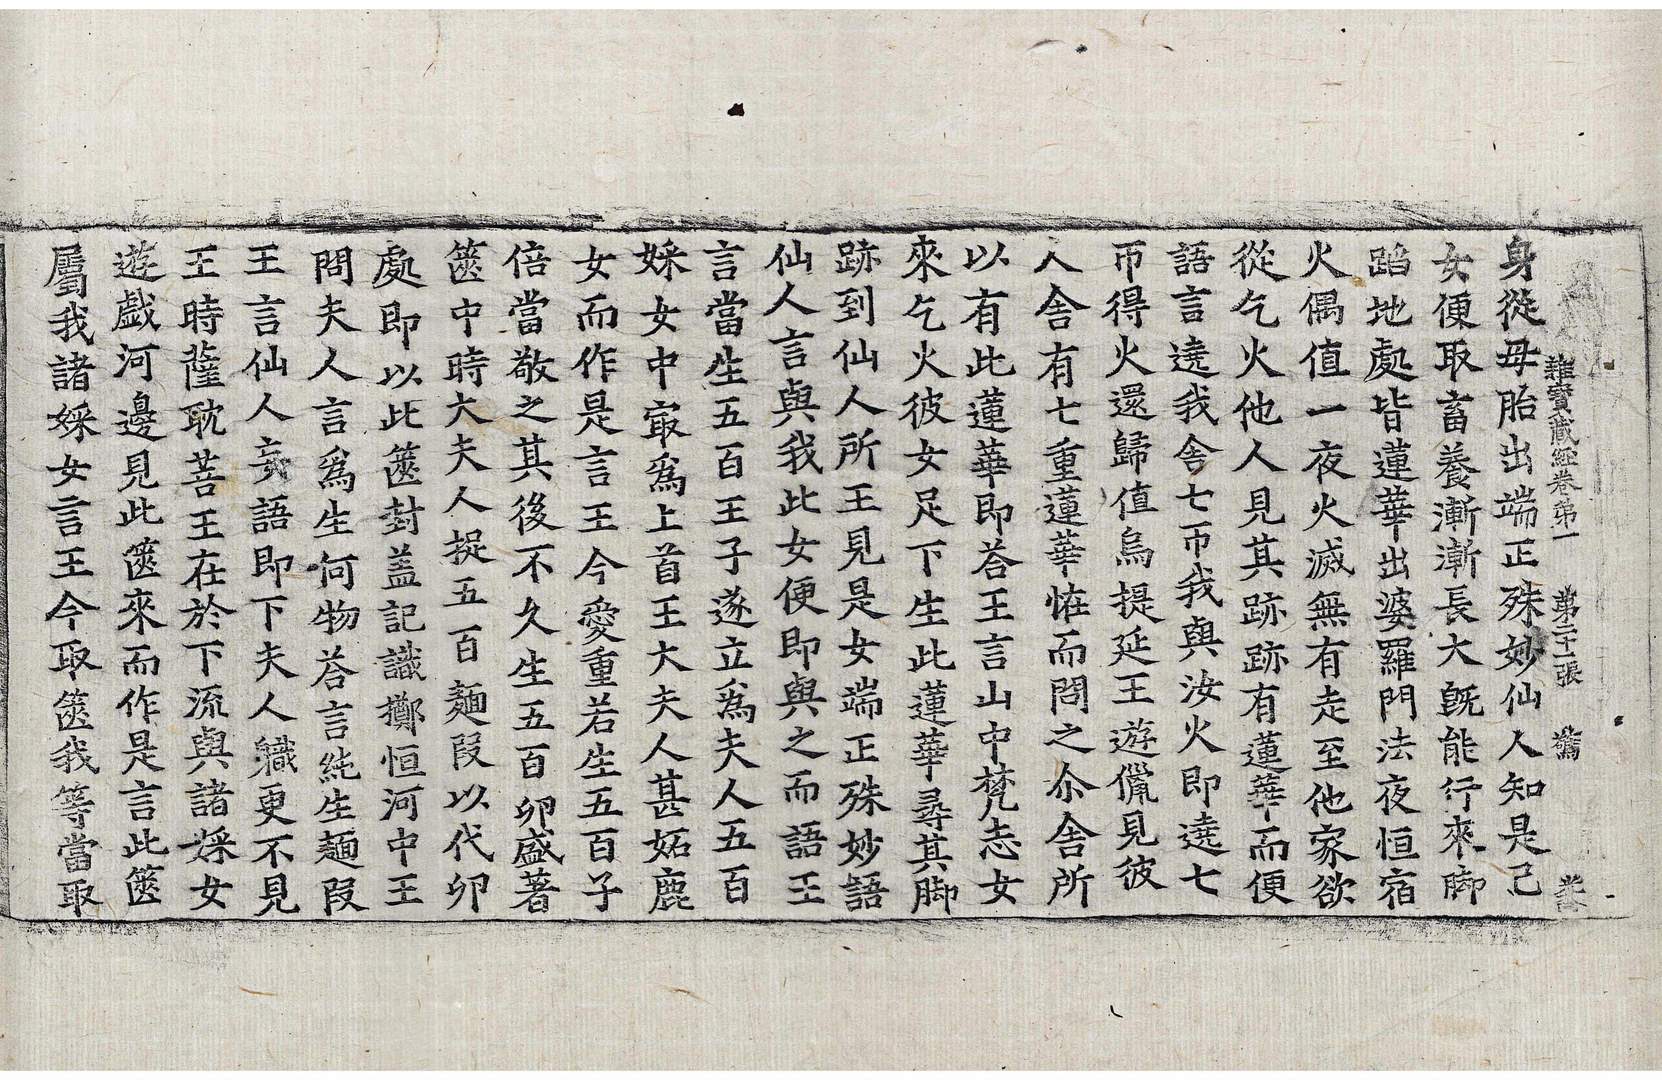 雜寶藏經卷第一 第二十一張 驚
身從母胎出端正殊妙仙人知是己
女便取畜養漸漸長大旣能行來脚
蹈地處皆蓮華出婆羅門法夜恒宿
火偶值一夜火滅無有走至他家欲
從乞火他人見其跡跡有蓮華而便
語言遶我舍七帀我與汝火即遶七
帀得火還歸值烏提延王遊獵見彼
人舍有七重蓮華恠而問之尒舍所
以有此蓮華即荅王言山中梵志女
來乞火彼女足下生此蓮華尋其脚
跡到仙人所王見是女端正殊妙語
仙人言與我此女便即與之而語王
言當生五百王子遂立爲夫人五百
婇女中㝡爲上首王大夫人甚妬鹿
女而作是言王今愛重若生五百子
倍當敬之其後不久生五百卵盛著
篋中時大夫人捉五百麵段以代卵
處即以此篋封盖記識擲恒河中王
問夫人言爲生何物荅言純生麵段
王言仙人妄語即下夫人軄更不見
王時薩耽菩王在於下流與諸婇女
遊戲河邊見此篋來而作是言此篋
屬我諸婇女言王今取篋我等當取